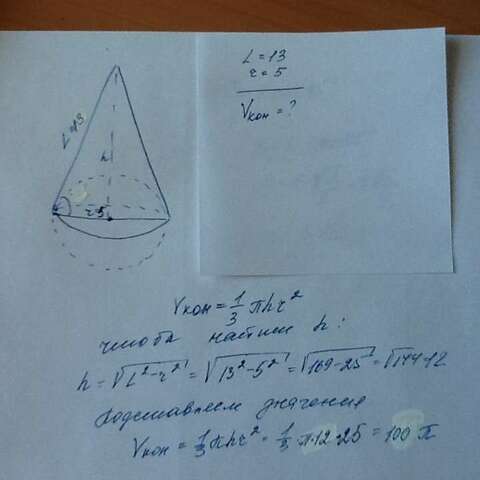 L=13
r=5
Vкон=?
L=13
h
r=5
Vкон=1/3 πhr²
чтобы найти h:
h=√L²-r²=√13²-5²=√169-25=√144=12
подставляем значения
Vкон=1/3 πhr²=1/3 π·12·25=100π